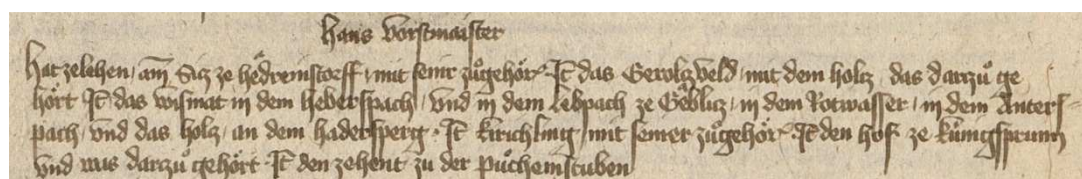 Hans Vorstmaister
Hat zelehen / am̄ Sicz ze hedreinstorff / mit seinr zůgehör᷑ · It̄ das Geroltzveld / mit dem holtz / das darzů ge
hört It̄ das wismat in dem heberspach / vnd in dem lebpach ze Geblicz / in dem Rotwasser / in dem Anters
pach / vnd das holz / an dem hadersperg · It̄ kirichling / mit seiner zůgehör᷑ · It̄ den hof ze künigsprunn
vnd was darzů gehört · It̄ den zehent zu der půcheinstuben